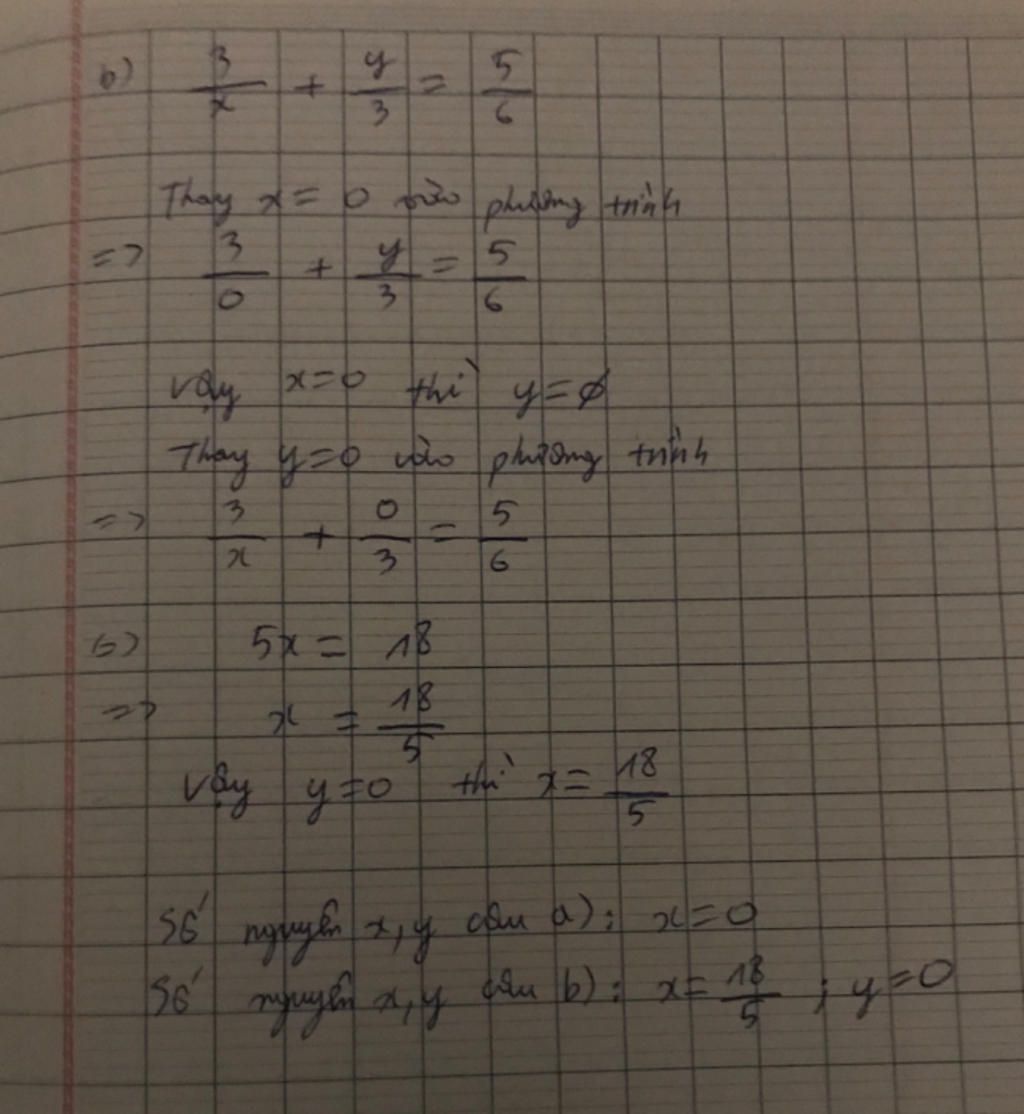 b) 3/x + y/3 = 5/6
Thay x = 0 vào phương trình
=> 3/0 + y/3 = 5/6
Vậy x = 0 thì y = ∅
Thay y = 0 vào phương trình
=> 3/x + 0/3 = 5/6
(=) 5x = 18
=> x = 18/5
Vậy y = 0 thì x = 18/5
Số nguyên x, y câu a): x = 0
Số nguyên x, y câu b): x = 18/5 ; y = 0